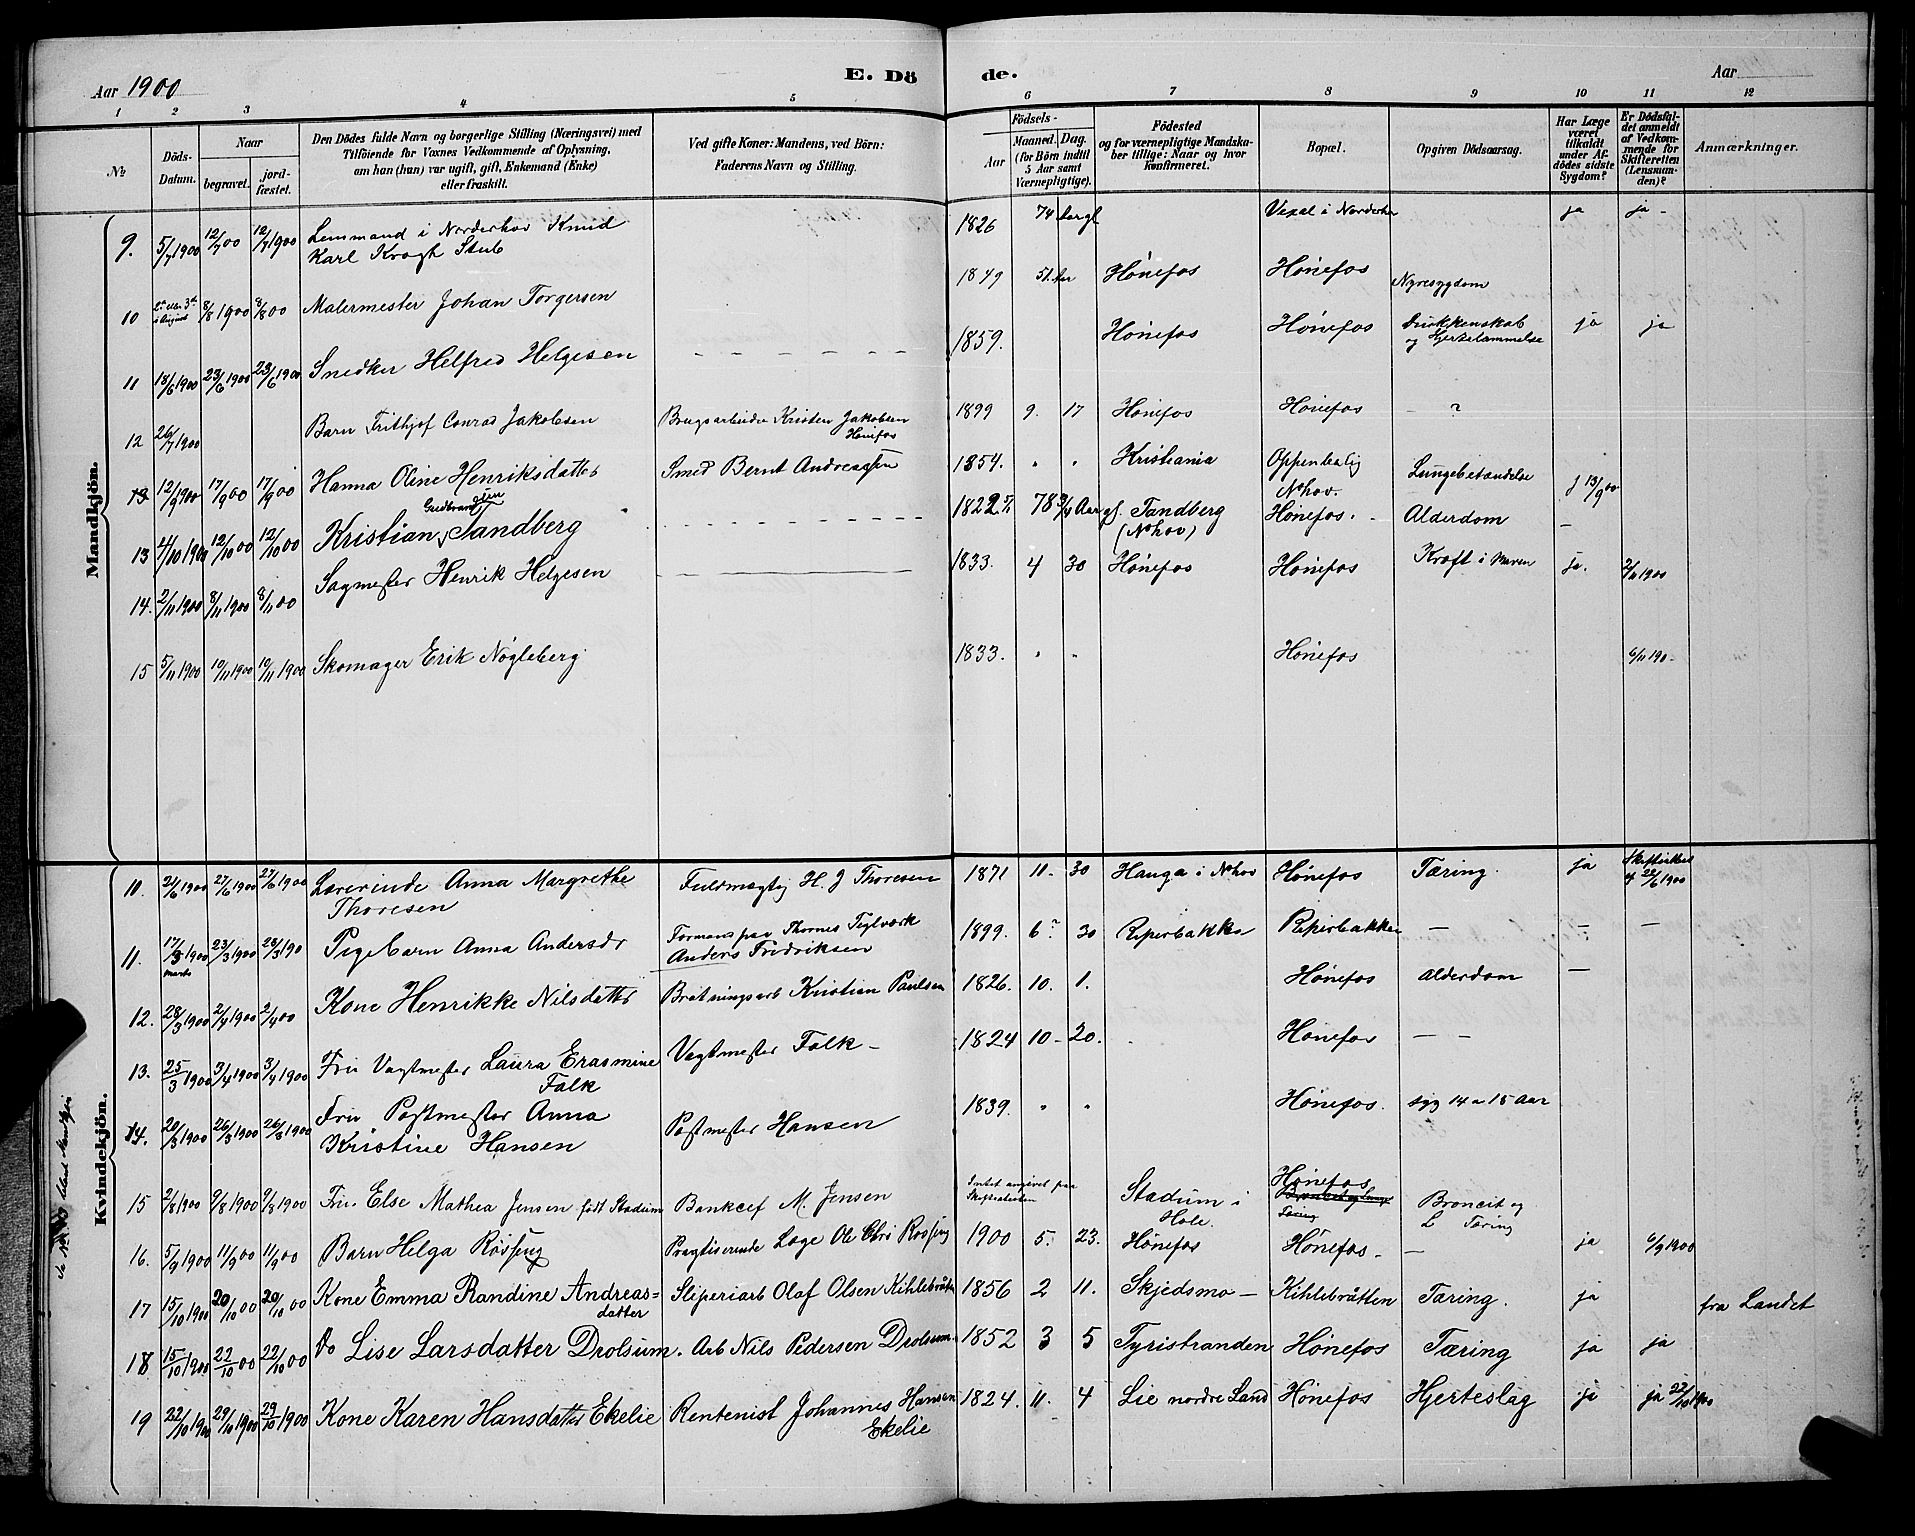 Aar 1900
E. Dö
de.
Aar
1 2 3 4 5 6 7 8 9 10 11 12
№
Döds-Datum.
Naar
begravet.
jord-fæstet.
Den Dödes fulde Navn og borgerlige Stilling (Næringsvei) med
Tilföiende for Voxnes Vedkommende af Oplysning,
om han (hun) var ugift, gift, Enkemand (Enke)
eller fraskilt.
Ved gifte Koner: Mandens, ved Börn:
Faderens Navn og Stilling.
Födsels-
Aar
Maaned. Dag.
(for Börn indtil
5 Aar samt
Værnepligtige).
Födested
og for værnepligtige Mandska-
ber tillige: Naar og hvor
konfirmeret.
Bopæl.
Opgiven Dödsaarsag.
Har Læge
været
tilkaldt
under Af-
dödes sidste
Sygdom?
Er Dödsfal-
det anmeldt
af Vedkom-
mende for
Skifteretten
(Lensman-
den)?
Anmærkninger.
Mandkjön.
9. 5/7 1900 12/7 00 12/7 1900 Lensmand i Norderhov Knud Karl Kragh Stub 1826 74 aargl Vexal i Norderhov ja ja -
10 2den eller 3die August 8/8 1900 8/8 00 Malermester Johan Torgersen 1849 51 Aar Hönefos Hönefos Nyresygdom
11 18/6 1900 23/6 1900 23/6 1900 Snedker Helfred Helgesen 1859. Hönefos Hönefos Drukkenskab og Hjertelammelse ja ja
12 26/7 1900 Barn Frithjof Conrad Jakobsen Brugsarbeider Kristen Jakobsen Hönefos 1899 9. 17 Hönefos Hönefos - ?
13 12/9 1900 17/9 00 17/9 00 Hanna Oline Henriksdatter Smed Bernt Andreassen 1854. " " Kristiania Oppenhalig Nhov. Lungebetændelse j 13/9 00
13 4/10 1900 12/10 00 12/10 00 Kristian Gudbrandsen Tandberg 1822 78 3/4 Aar gl. Tandberg (Nhov) Hönefos. Alderdom -
14. 2/11 1900 8/11 1900 8/11 00 Sagmester Henrik Helgesen 1833. 4 30 Hönefos Hönefos Kræft i Maven ja. 2/11 1900
15 5/11 1900 10/11 1900 10/11 1900 Skomager Erik Nögleberg 1833. " " Hönefos 6/11 190-
Kvindekjön.
10. 21/6 1900 27/6 1900 27/6 1900 Lærerinde Anna Margrethe Thoresen Fuldmægtig H. J Thoresen 1871 11. 30 Hauga i Nhov Hönefos Tæring. ja 22/6 1900
11. 17/3 1900 marts 23/3 1900 23/3 190 Pigebarn Anna Andersdr Formand paa Thornes Teglværk Anders Fredriksen 1899. 6 30 Reperbakke Reperbakken - - -
12. 28/3 1900 2/4 1900 2/4 00 Kone Henrikke Nilsdatter Brötningsarb Kristian Paulsen 1826. 10. 1. Hönefos Alderdom -
13. 25/3 1900 3/4 1900 3/4 1900 Fru Vagtmester Laura Erasmine Falk Vagtmester Falk - 1824 10 - 20. Hönefos - -
14. 20/3 1900 26/3 1900 26/3 1900 Fru Postmester Anna Kristine Hansen Postmester Hansen 1839. " " Hönefos. syg 14 a 15 Aar
15 2/8 1900 9/8 1900 9/8 1900 Fru Else Mathea Jensen født Stadum Bankcef M. Jensen Intet angivet paa Skifteattesten Stadum i Hole. Hönefos Broncit og L Tæring
16. 5/9 1900 11/9 00 11/9 00 Barn Helga Rövsing Pragtiserende Læge Ole Chr. Rovsing 1900 5. 23. Hönefos Hönefos - - ja 6/9 1900
17 15/10 1900 20/10 00 20/10 00 Kone Emma Randine Andreas=datter Sliperiarb Olaf Olsen Kihlebråtten 1856 2 11. Skjedsmo - Kihlebråtten Tæring. ja fra Landet
18 15/10 1900 22/10 00 22/10 00 Do Lise Larsdatter Drolsum. Arb Nils Pedersen Drolsum 1852 3 5 Tyristranden Hönefos Tæring ja ja
19 22/10 1900 29/10 1900 29/10 1900 Kone Karen Hansdatter Ekelie Rentenist Johannes Hansen Ekelie 1824. 11. 4 Lie nordre Land Hönefos Hjerteslag ja ja 22/10 1900